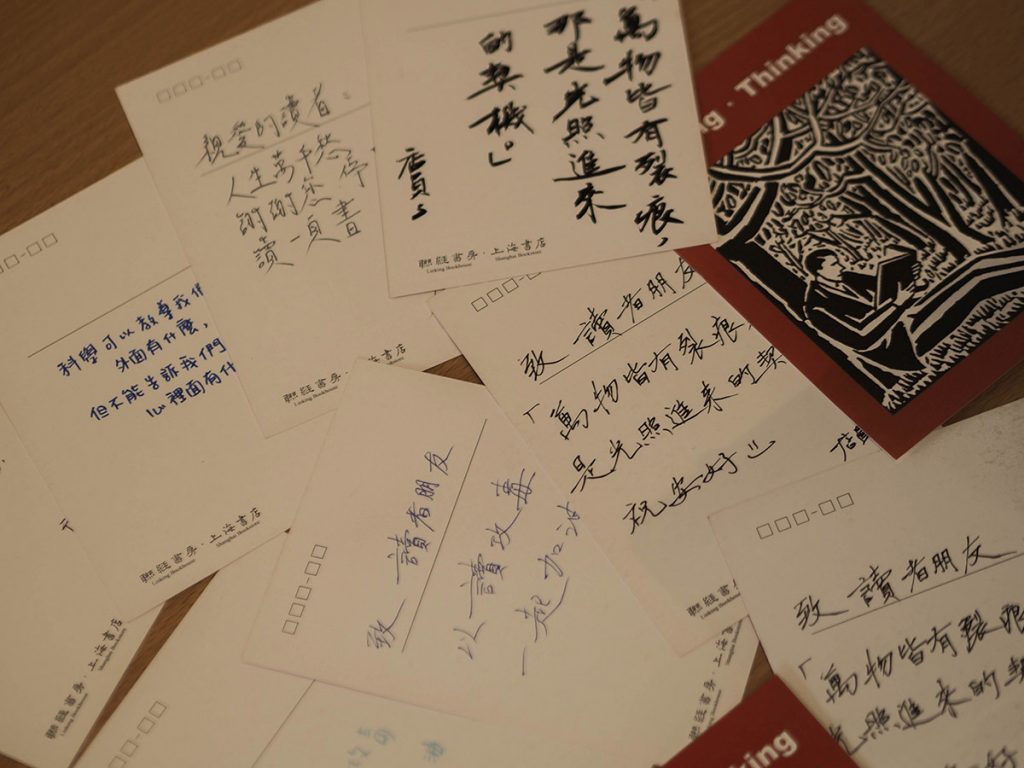 萬物皆有裂痕,
那是光照進來
的契機。」
店員
聯經書房·上海書店
Linking Bookhouse Shanghai Bookstore
Thinking
親愛的讀者。
人生萬千
謝謝您 停
讀一頁書
聯經書房·上海書店
Linking Bookhouse
科學可以教導我們
外面有什麼,
但不能告訴我們
心裡面有什
聯經書房·上海書店
Linking Bookhouse Shanghai Bookstore
致 讀者朋友
「萬物皆有裂痕
是光照進來的契
祝安好
店
聯經書房·上海書店
Linking Bookhouse
致 讀者朋友
以讀攻毒
一起加油
致 讀者朋友
「萬物皆有裂痕
光照進來的契
好
聯經書房·上海書店